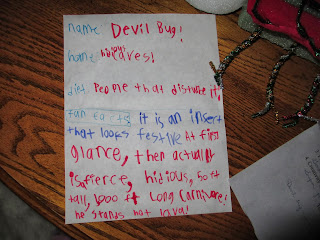 name Devil Bug!
home leaves!
diet People that disturb it!
fun facts it is an insect
that looks festive at first
glance, then actually
is fierce, hidious, 50 ft
tall, 600 ft long Carnivore!
he stands hot lava!